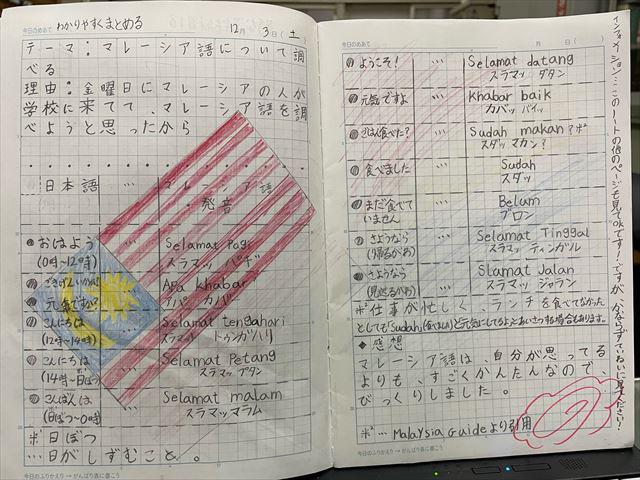 今日のめあて わかりやすくまとめる 12月 3日(土)
テーマ:マレーシア語について調
べる
理由:金曜日にマレーシアの人が
学校に来てて、マレーシア語を調
べようと思ったから
日本語 … マレーシア語
発音
おはよう … Selamat Pagi
(0時~12時) スラマッ パギ
ごきげんいかが … Apa khabar
元気ですか? アパ カバー
こんにちは … Selamat tengahari
(12時~14時) スラマッ トゥンガハリ
こんにちは … Selamat Petang
(14時~日ぼつ) スラマッ プタン
こんばんは … Selamat malam
(日ぼつ~0時) スラマッマラム
※日ぼつ
…日がしずむこと。
今日のふりかえり→がんばり表に書こう
今日のめあて 月 日( )
ようこそ! … Selamat datang
スラマッ ダタン
元気ですよ … Khabar baik
カバッ バイッ
ごはん食べた? … Sudah makan?
スダッ マカン?
食べました … Sudah
スダッ
まだ食べて … Belum
いません ブロン
さようなら … Selamat Tinggal
(帰るがわ) スラマッ ティンガル
さようなら … Slamat Jalan
(見送るがわ) スラマッ ジャラン
※仕事が忙しく、ランチを食べてなかった
としてもSudah(食べました)と元気にしてるよとあいさつする場合もあります。
◆感想
マレーシア語は、自分が思ってる
よりも、すごくかんたんなので、
びっくりしました。
※…Malaysia Guideより引用
今日のふりかえり→がんばり表に書こう
インフォメイション:このノートの他のページも見てokです!ですが、